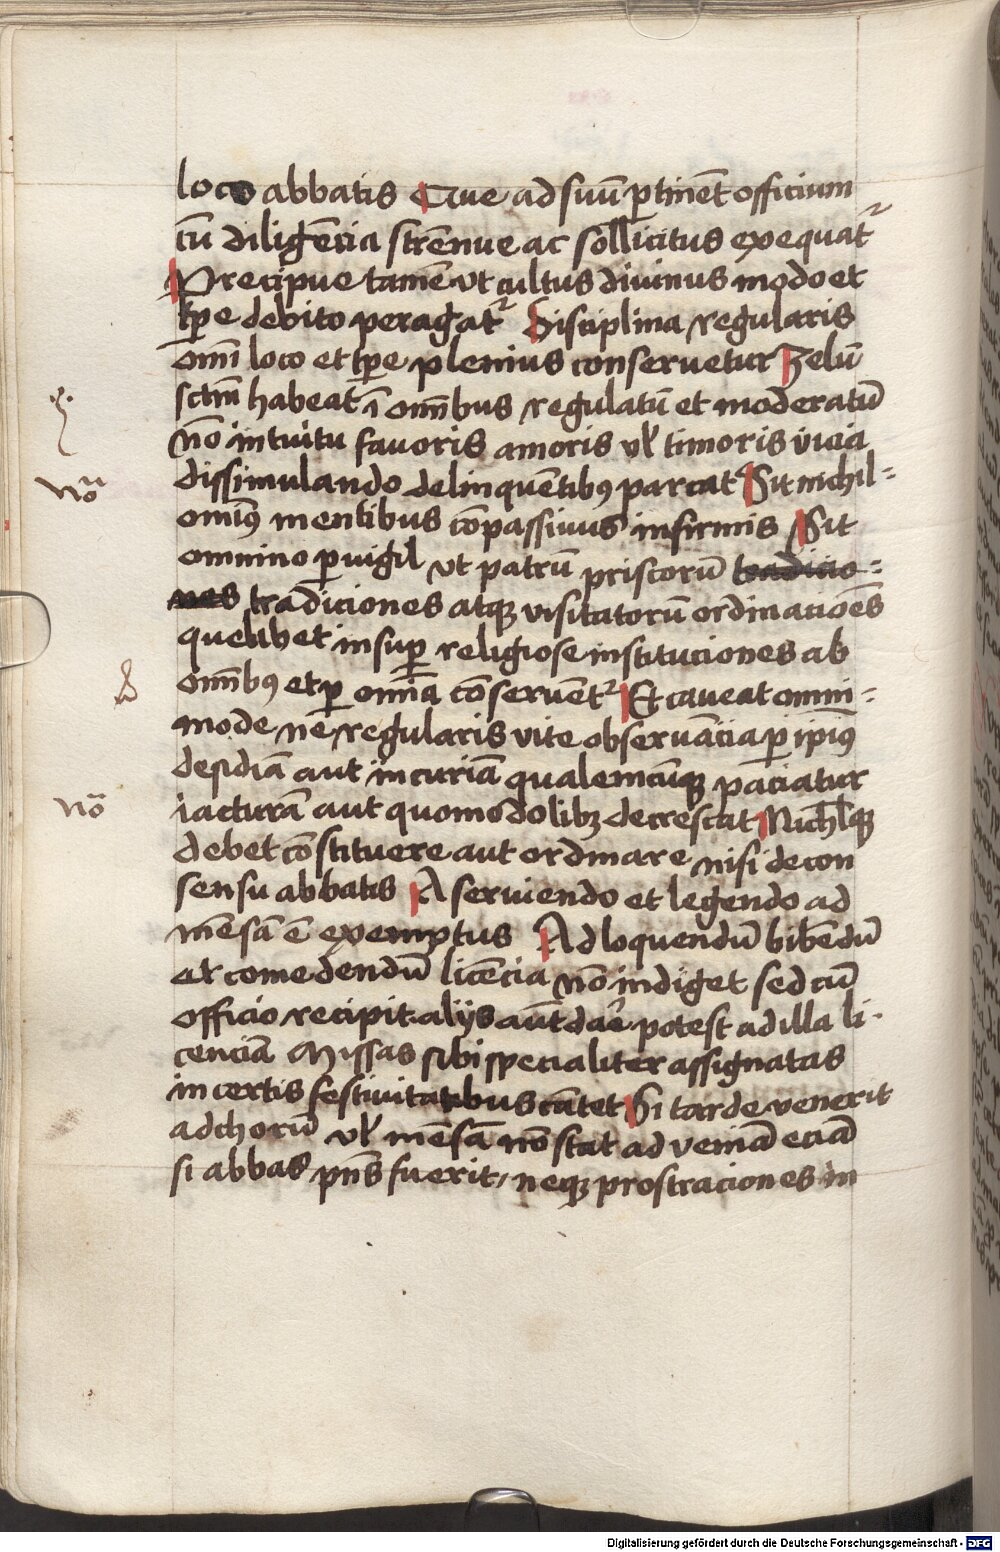 loco abbatis Que ad suū ꝑtinēt officium
cū diligēcia strēnue ac sollicitus exequat᷑
Precipue tamē vt cultus diuinus modo et
tꝑe debito peragat᷑ Disciplina regularis
om̄i loco et tꝑe plenius conseruetur Zelū
sctm̄ habeat ī om̄ibus regulatū et moderatū
nō intuitu fauoris amoris vl̛ timoris vicia
nōa
dissimulando delinquētibꝰ parcat Sit nichil-
ominꝰ mentibus cōpassiuus infirmis Sit
omnino ꝑuigil vt patrū priscorū tradicio-
nes tradiciones atqꝫ visitatorū ordinacioēs
quelibet insuꝑ religiose instituciones ab
om̄ibꝰ et ꝑ om̄ia cōseruēt᷑ Et caueat omni-
mode ne regularis vite obseruācia ꝑ ipiꝰ
desidiā aut incuriā qualemcūqꝫ paciatur
nō
iacturā aut quomodolibꝫ decrescat Nichilqꝫ
debet cōstituere aut ordinare nisi de con
sensu abbatis A seruiendo et legendo ad
mēsā ē exemptus Ad loquendū bibēdū
et comedendū licēcia nō indiget sed cū
officio recipit alijs aūt dar̄e potest ad illa li-
cenciā Missas sibi specialiter assignatas
in certis festiuitatibus cātet Si tarde venerit
ad chorū vl̛ mēsā nō stat ad veniā eciā
si abbas pn̄s fuerit, neqꝫ prostraciones in
Digitalisierung gefördert durch die Deutsche Forschungsgemeinschaft - DFG